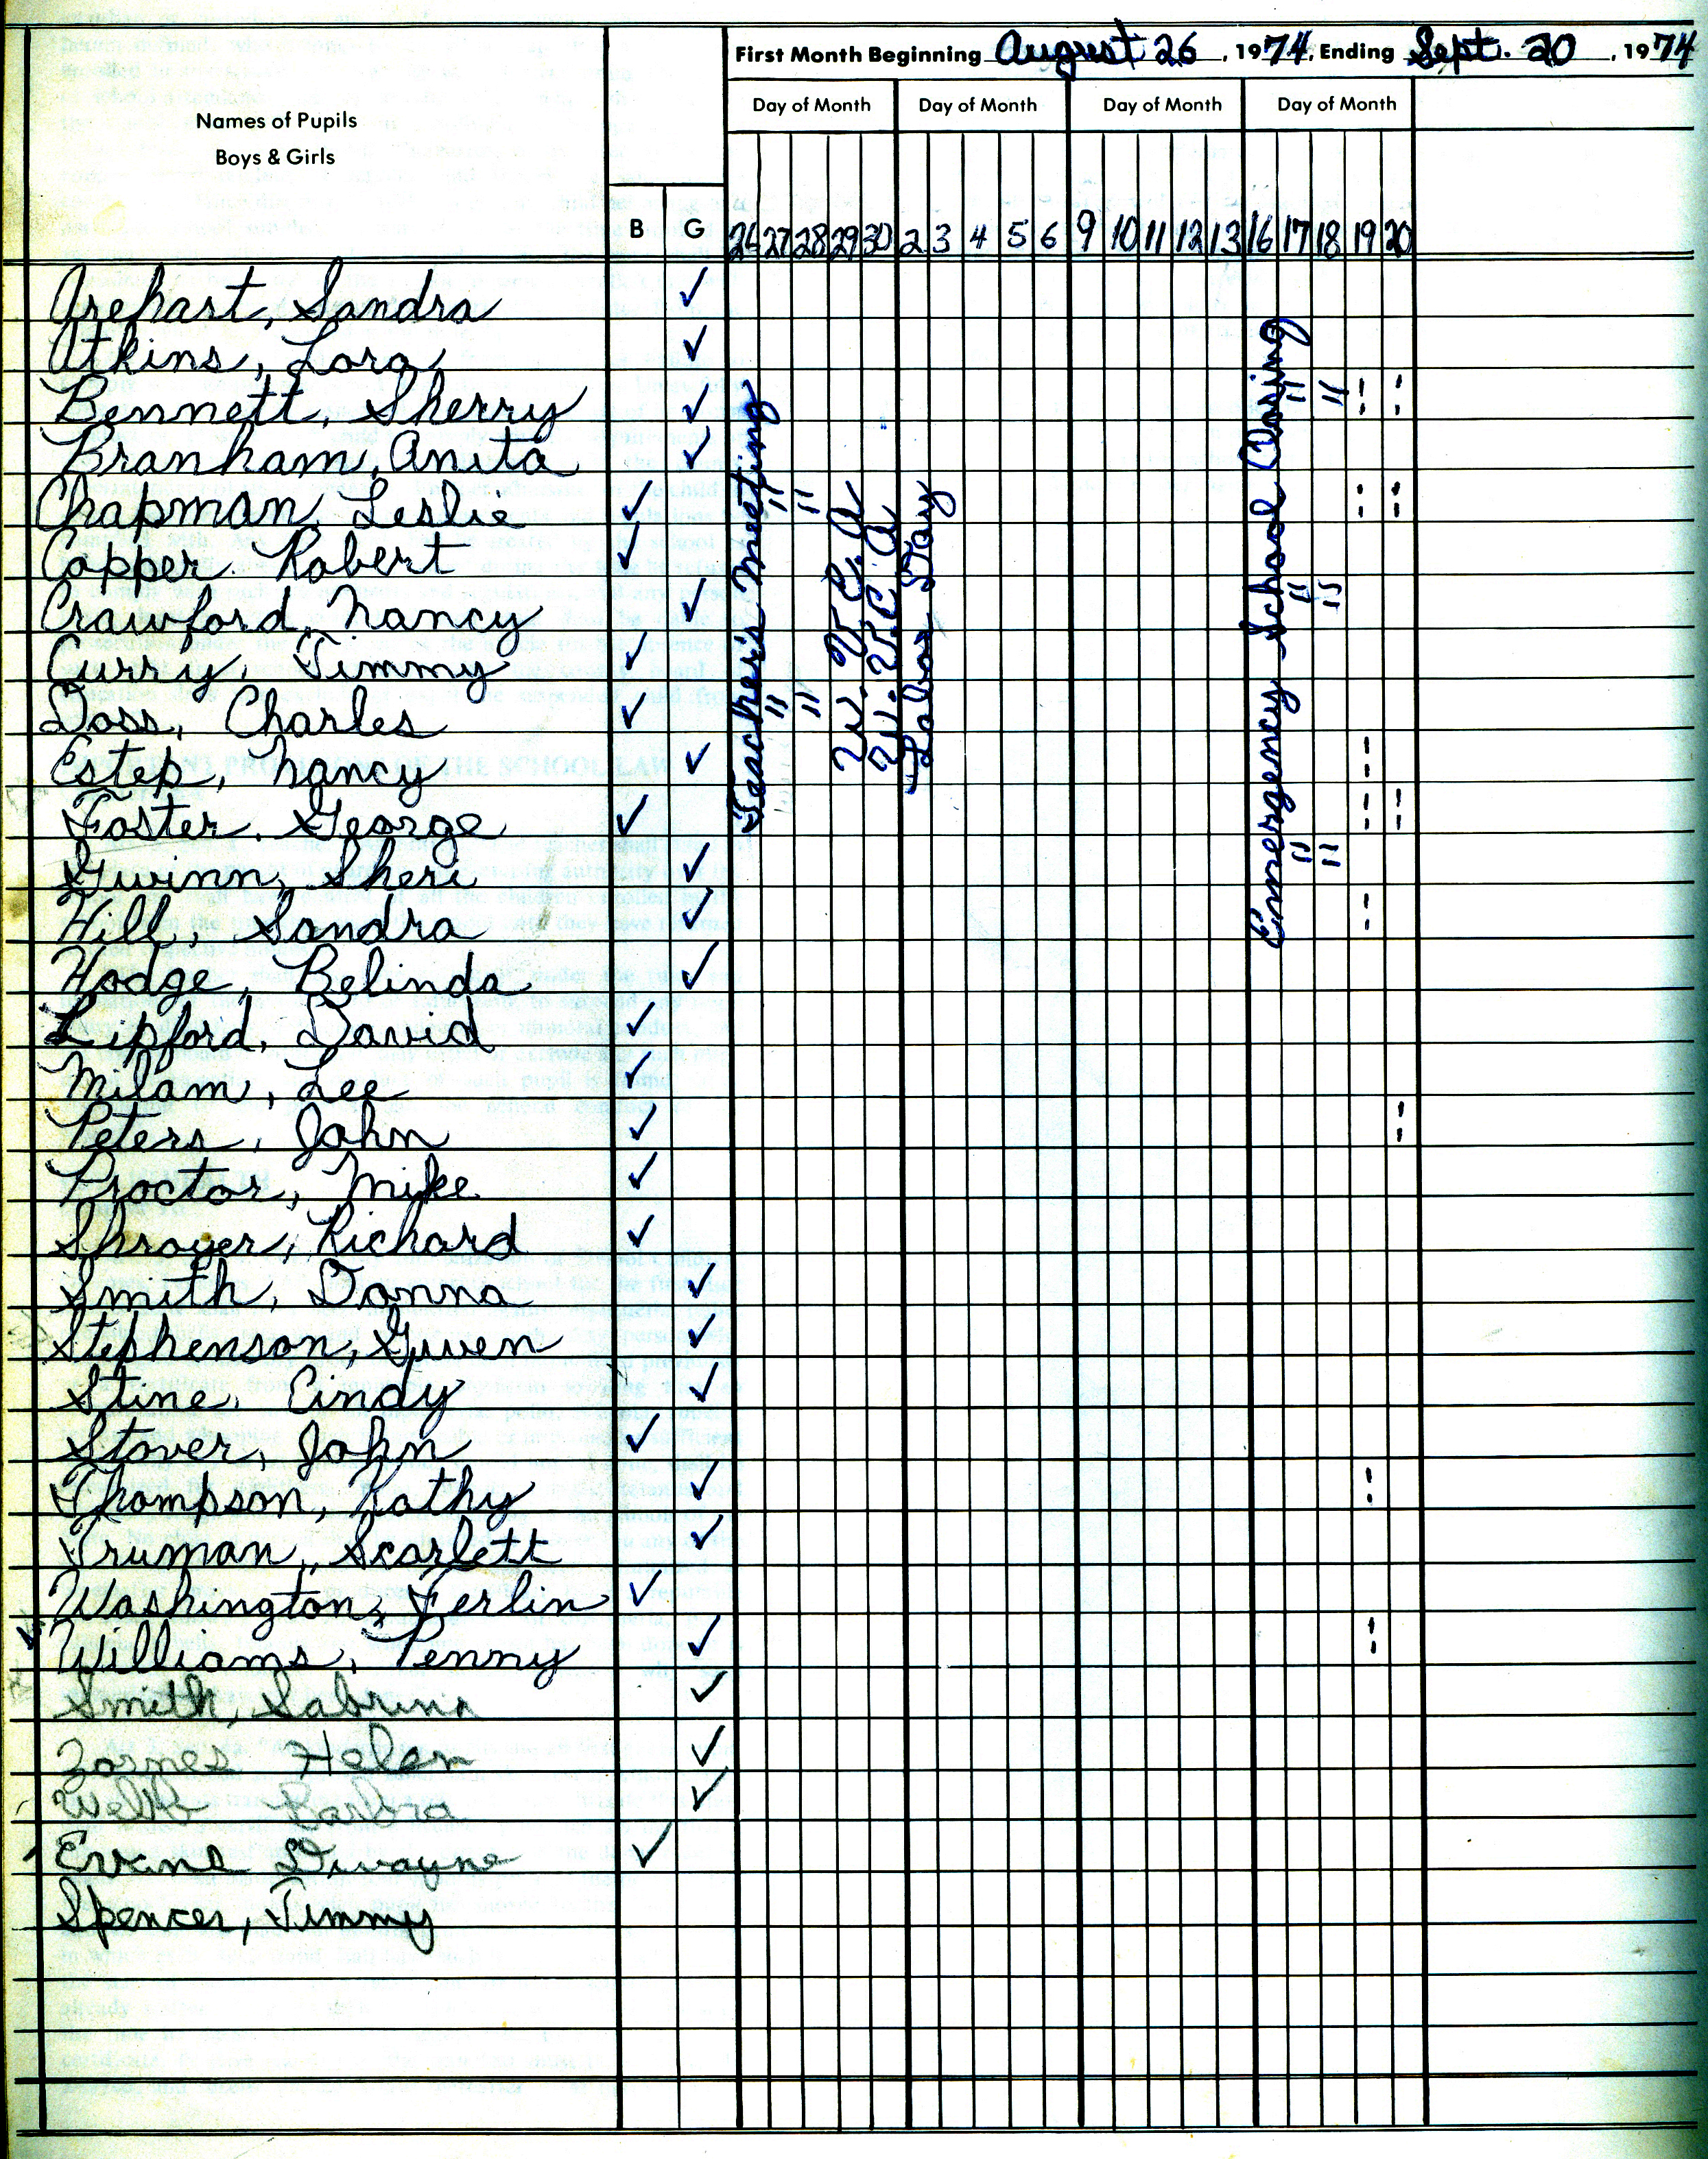 First Month Beginning August 26, 1974, Ending Sept. 20, 1974
Names of Pupils
Boys & Girls
Day of Month Day of Month Day of Month Day of Month
B G 26 27 28 29 30 2 3 4 5 6 9 10 11 12 13 16 17 18 19 20
Arehart, Sandra ✓
Atkins, Lora ✓
Bennett, Sherry ✓ " " ¦ ¦
Branham, Anita ✓
Chapman, Leslie ✓ " " ¦ ¦
Copper Robert ✓
Crawford, Nancy ✓ " "
Curry, Timmy ✓
Doss, Charles ✓ " "
Estep, Nancy ✓ ¦
Foster, George ✓ ¦ ¦
Gwinn, Sheri ✓ " "
Hill, Sandra ✓ ¦
Hodge, Belinda ✓
Lipford, David ✓
Milam, Lee ✓
Peters, John ✓ ¦
Proctor, Mike ✓
Shroyer, Richard ✓
Smith, Donna ✓
Stephenson, Gwen ✓
Stine, Cindy ✓
Stover, John ✓
Thompson, Kathy ✓ ¦
Truman, Scarlett ✓
Washington, Ferlin ✓
Williams, Penny ✓ ¦
Smith, Sabrina ✓
Zornes Helen ✓
Webb Barbra ✓
Evans Dwayne ✓
Spencer, Timmy
Teacher's Meeting
" "
" "
W.V.E.A
W.V.E.A
Labor Day
Emergency School Closing